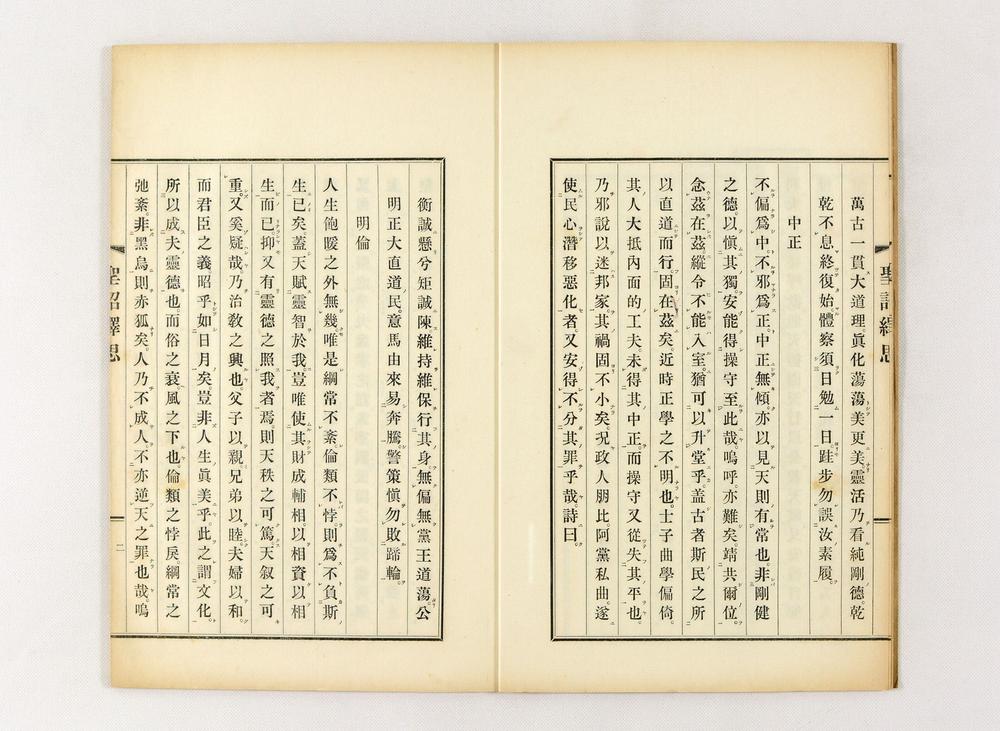 萬古一貫大道理眞化蕩蕩美更美靈活乃看純剛德乾
乾不息終復始體察須日勉一日跬步勿誤汝素履
中正
不偏爲中不邪爲正中正無傾亦以見天則有常也非剛健
之德以愼其獨安能得操守至此哉嗚呼亦難矣靖共爾位
念茲在茲縱令不能入室猶可以升堂乎盖古者斯民之所
以直道而行固在茲矣近時正學之不明也士子曲學偏倚
其人大抵內面的工夫未得其中正而操守又從失其平也
乃邪說以迷邦家其禍固不小矣况政人朋比阿黨私曲遂
使民心潛移惡化者又安得不分其罪乎哉詩曰
衡誠懸兮矩誠陳維持維保行其身無偏無黨王道蕩公
明正大直道民意馬由來易奔騰警策愼勿敗蹄輪
明倫
人生飽暖之外無幾唯是綱常不紊倫類不悖則爲不負斯
生已矣蓋天賦靈智於我豈唯使其財成輔相以相資以相
生而已抑又有靈德之照我者焉則天秩之可篤天叙之可
重又奚疑哉乃治敎之興也父子以親兄弟以睦夫婦以和
而君臣之義昭乎如日月矣豈非人生眞美乎此之謂文化
所以成夫靈德也而俗之衰風之下也倫類之悖戾綱常之
弛紊非黑烏則赤狐矣人乃不成人不亦逆天之罪也哉嗚
聖詔繹思
二